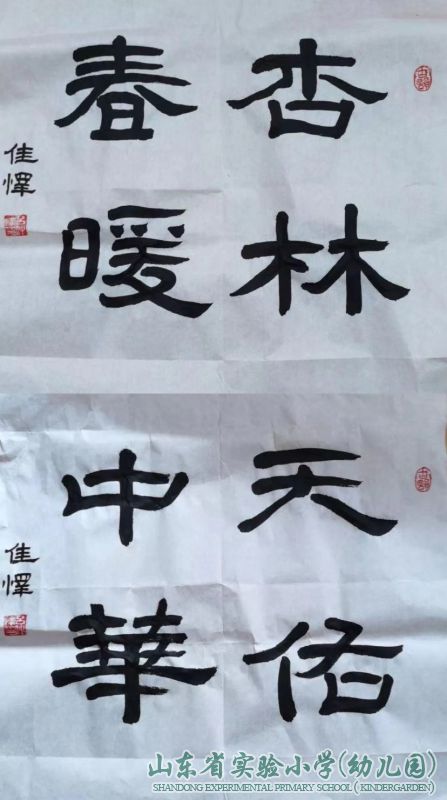 杏林
春暖
佳怿
天佑
中華
佳怿
山东省实验小学(幼儿园)
SHANDONG EXPERIMENTAL PRIMARY SCHOOL ( KINDERGARDEN)